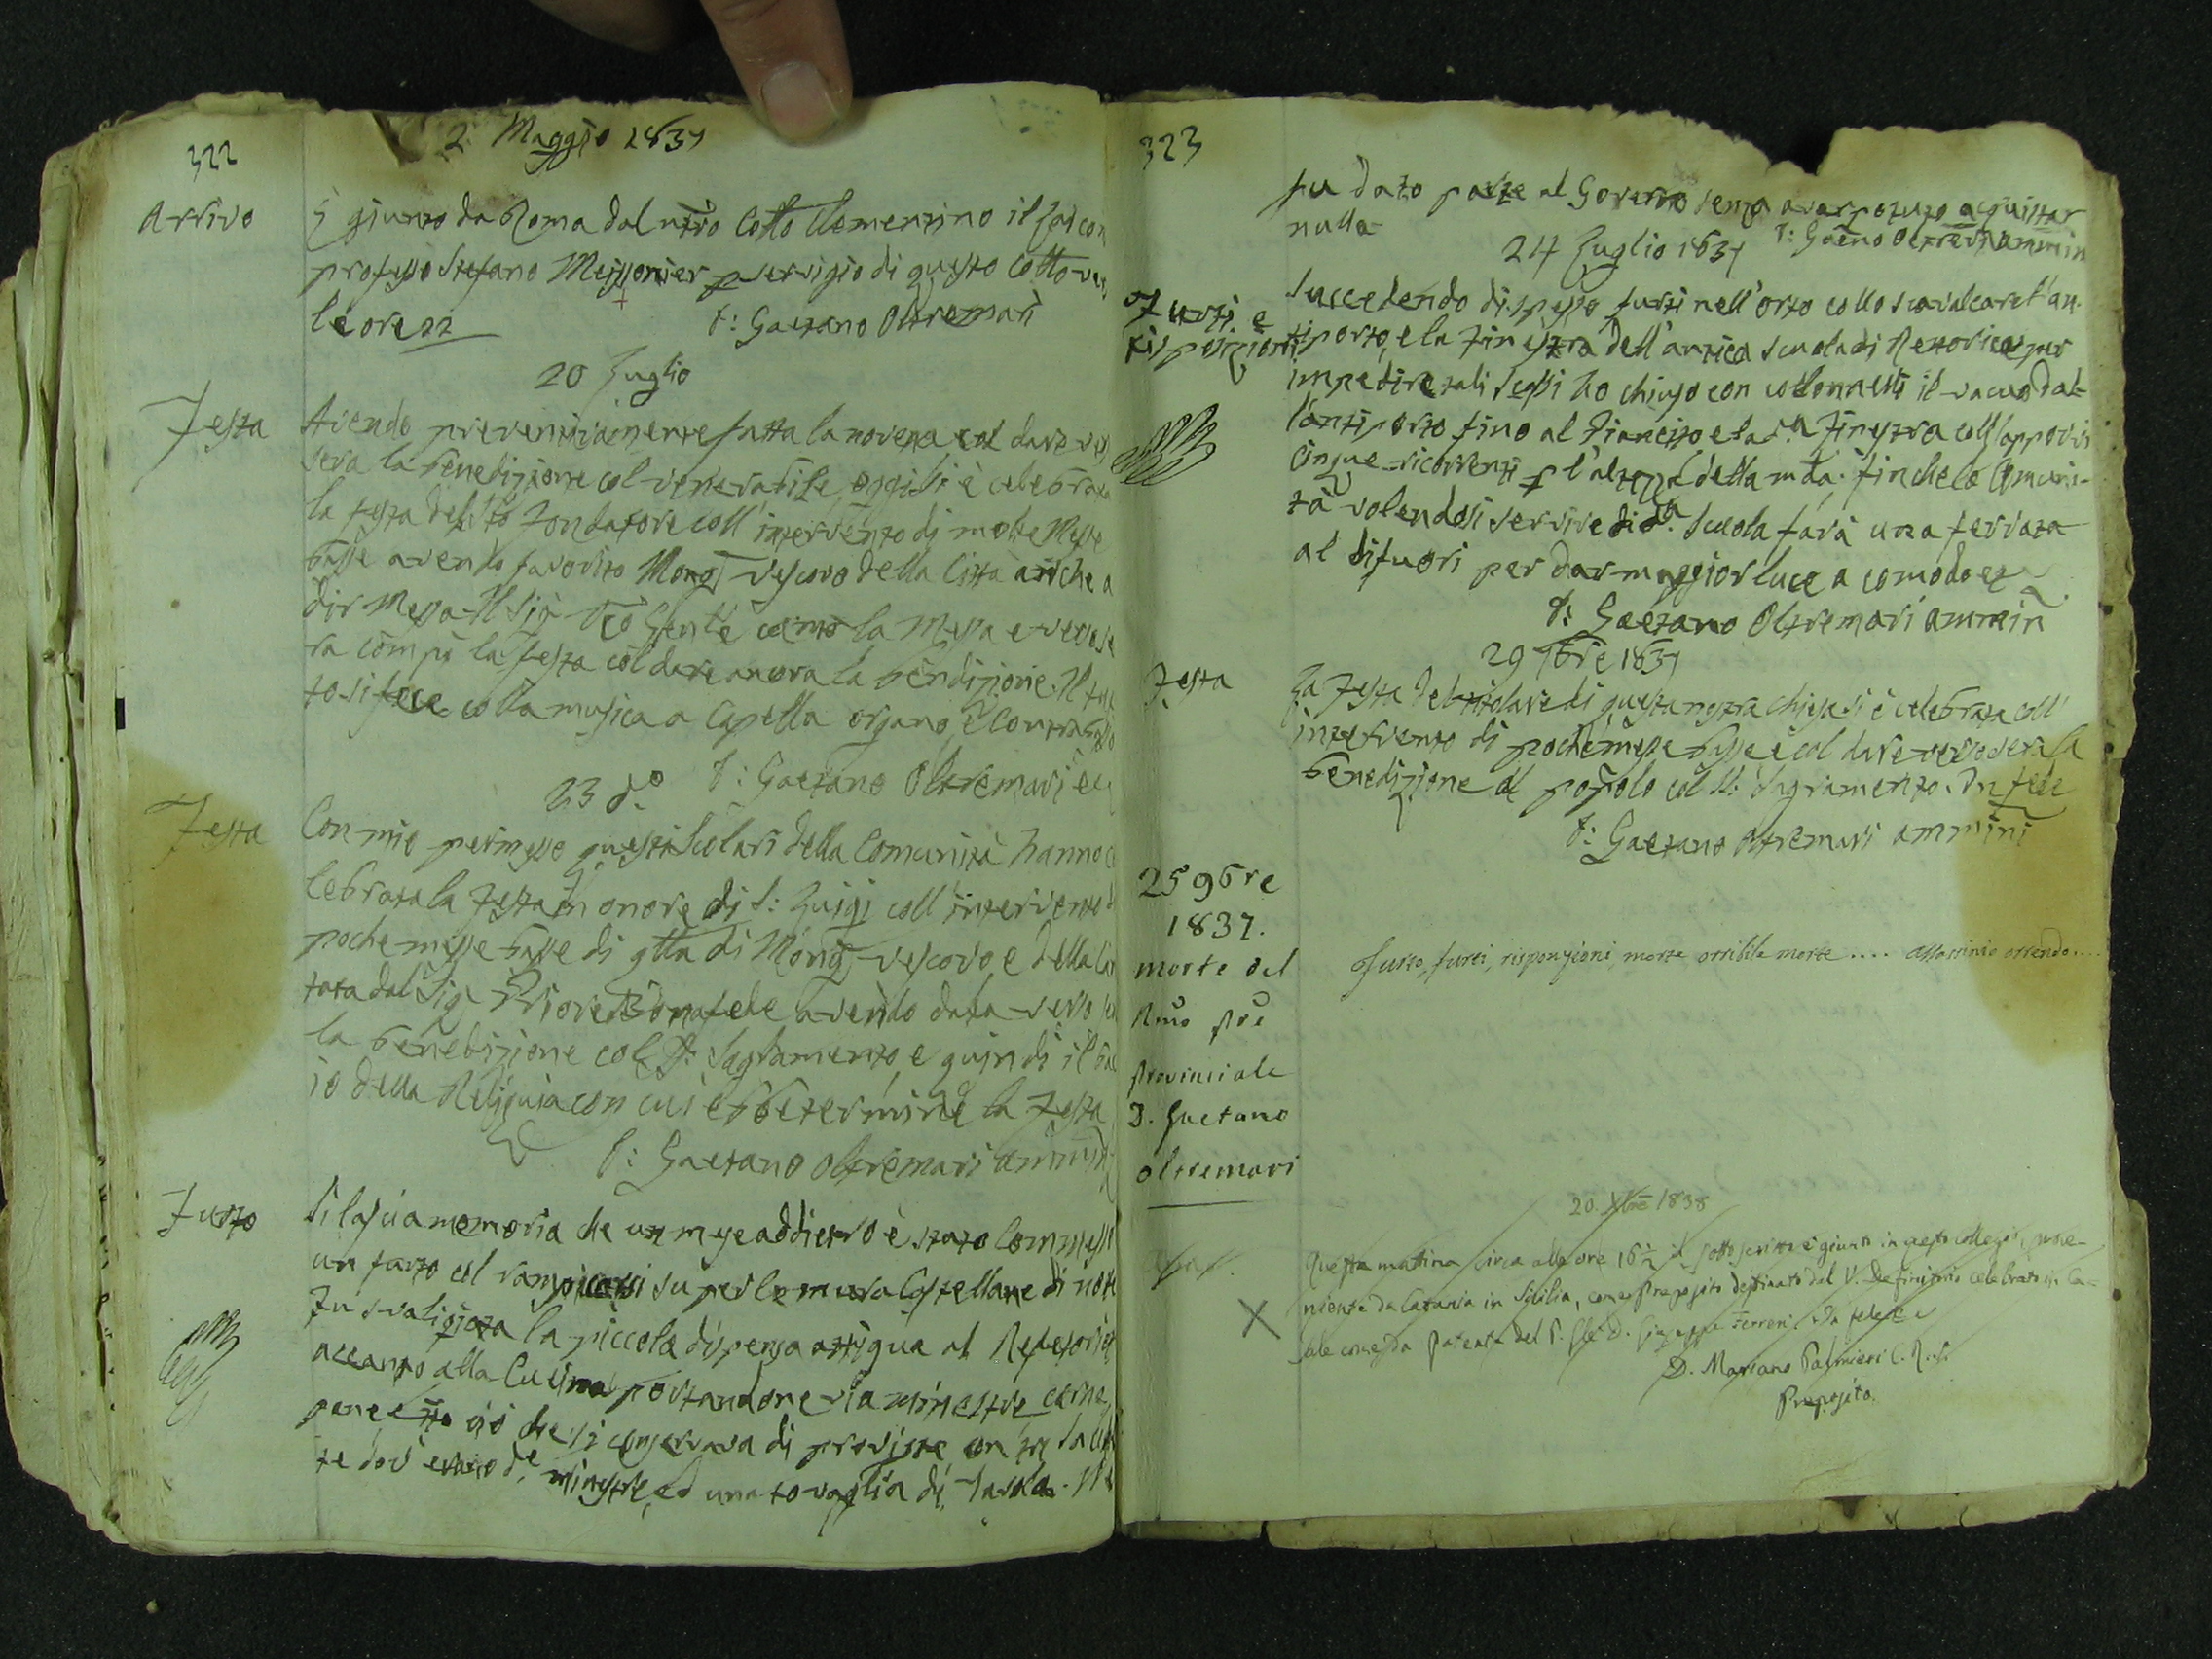 322
2. Maggio 1837
Arrivo
È giunto da Roma dal nrō Collo Clementino il
professo Stefano Meissonier p servigio di questo Collo
le ore 22
F: Gaetano Oltremari
20 Luglio
Festa
Avendo preventivamente fatta la novena col dare
sera la benedizione col venerabile, oggi si è celebrata
la festa del Sto Fondatore coll' intervento di molte Messe
basse avendo favorito Mong Vescovo della Città anche a
dir Messa. Il Sig Gentè cantò la Messa e verso se
ra compì la festa col dare ancora la bendizione. Il tut
to si fece colla musica a Capella organo, e Contrabasso
F: Gaetano Oltremari
23 do
Festa
Con mio permesso questi Scolari della Comunità hanno ce
lebrata la Festa in onore di S: Luigi coll' intervento di
poche messe basse di qlla di Mong Vescovo e della Can
tata dal Sig Priore Bonafede avendo data verso se
la benedizione col S: Sagramento, e quindi il bac
io della Reliquia con cui ebbe termine la Festa
F: Gaetano Oltremari ammin
Furto
Si lascia memoria che un mese addietro è stato Commesso
un furto col rampicarsi su per le mura Castellane di notte
Fu svaligiata la piccola dispensa attigua al Refetorio
accanto alla Cucina portandone via minestre carne
pane e tto ciò che si conservava di proviste con tre
te dov' erano de minestre, ed una tovaglia di Tavola.
323
fu dato parte al Governo senza aver potuto acquistar
nulla
F: Gaeno Oltremari ammin
24 Luglio 1837
Furti e
risposizioni
Succedendo di spesso furti nell' orto collo scavalcare l'an-
tiporto, e la Finestra dell' antica Scuola di Rettorica, per
impedire tali ho chiuso con collonnette il vacuo dal-
l'antiporto fino al e la da Finestra coll'
cinque ricorrenti p l'altezza della mda. finchè la Comuni-
tà volendosi servire di da Scuola farà una ferrata
al difuori per dar maggior luce a comodo
F: Gaetano Oltremari ammin
29 7bre 1837
Festa
La Festa del titolare di questa nostra chiesa si è celebrata coll'
intervento di poche messe basse e col dare verso sera la
benedizione al popolo col S: Sagramento. In fede
F: Gaetano Oltremari ammini
25 9bre
1837.
morte del
Rmo Pre
Provinciale
D. Gaetano
Oltremari
Furto, furti, risponsioni, morte orribile morte .... assassinio orrendo....
20. Xbre 1838
X
Questa mattina circa alle ore 16 ½ il sottoscritto è giunto in questo collegio, prove-
niente da Catania in Sicilia, come Preposito destinato dal V. Definitorio celebrato in Ca-
sale come da Patente del P. Gle D. Giuseppe Ferreri. In fede
D. Mariano Palmieri C. R. S.
Preposito.